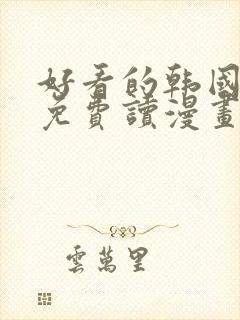 好看的韩國
免費讀漫畫
雲萬里